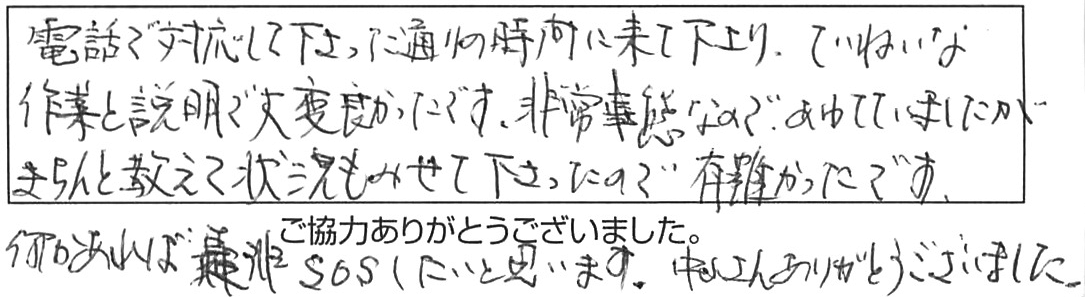 電話で対応して下さった通りの時間に来て下さり、ていねいな
作業と説明で大変良かったです。非常事態なので、あわてていましたが
きちんと教えて状況もみせて下さったので有難かったです。
ご協力ありがとうございました。
何かあれば是非SOSしたいと思います。さんありがとうございました。